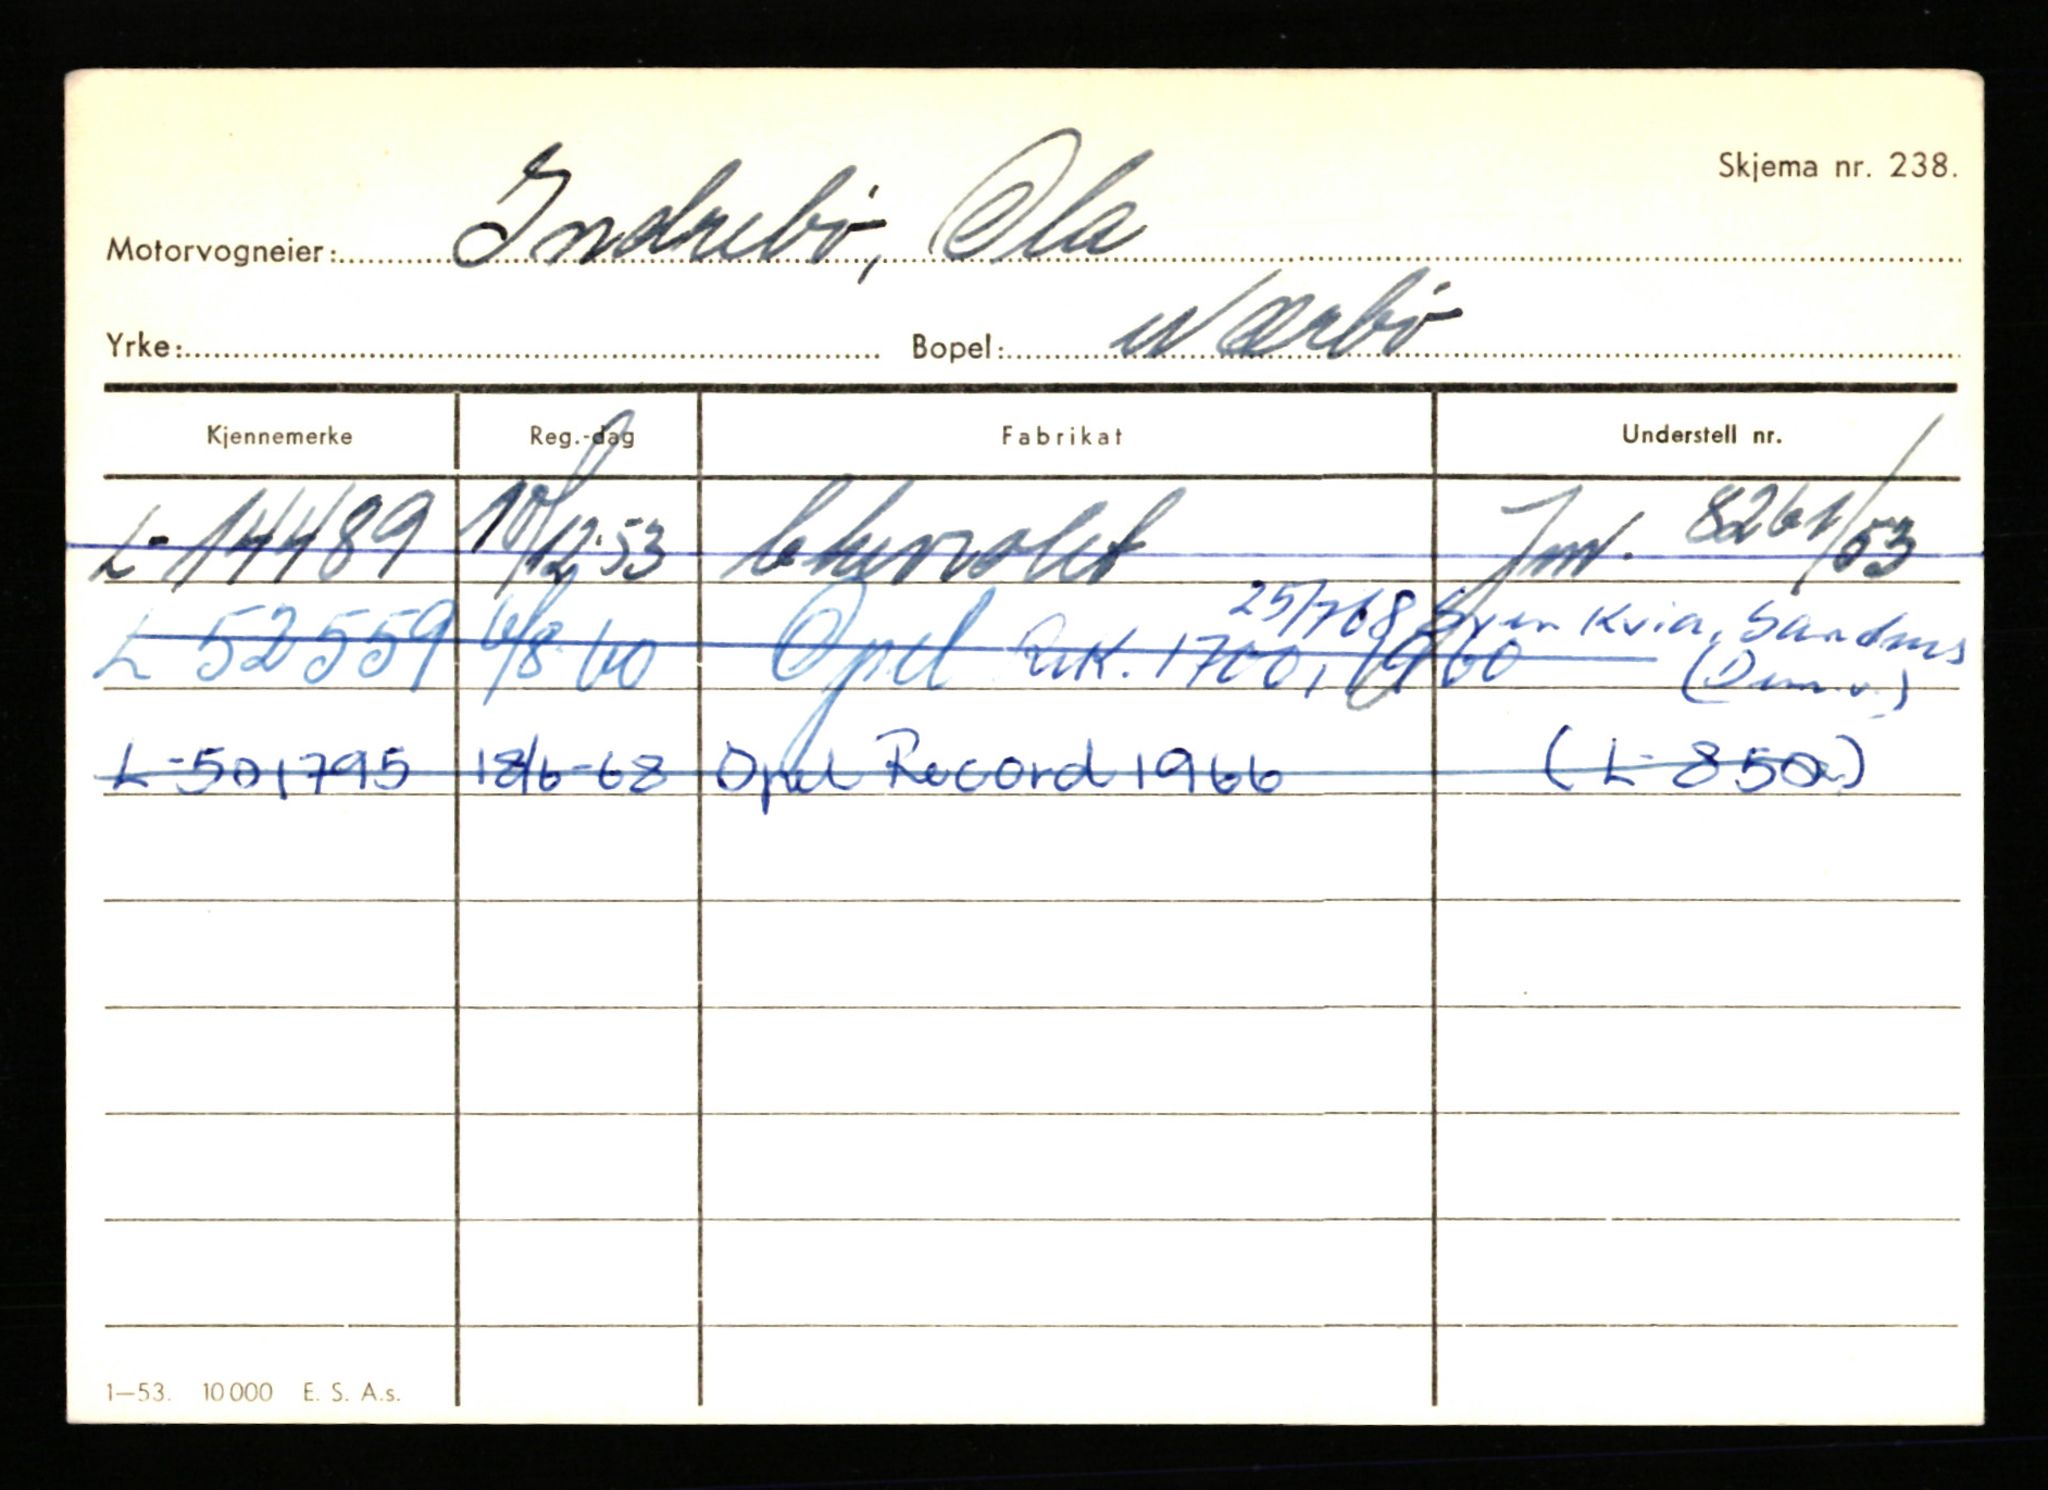 Skjema nr. 238.
Motorvogneier: Indrebø, Ola
Yrke: Bopel: Nærbø
Kjennemerke Reg.-dag Fabrikat Understell nr.
L-14489 10/12-53 Chevrolet Jnr. 8261/53
25/7 68 Sven Kvia, Sandnes
L 52559 6/8 60 Opel Rek. 1700, 1960 (Dem.v.)
L-501795 18/6-68 Opel Record 1966 (L-850)
1—53. 10 000 E. S. A.s.